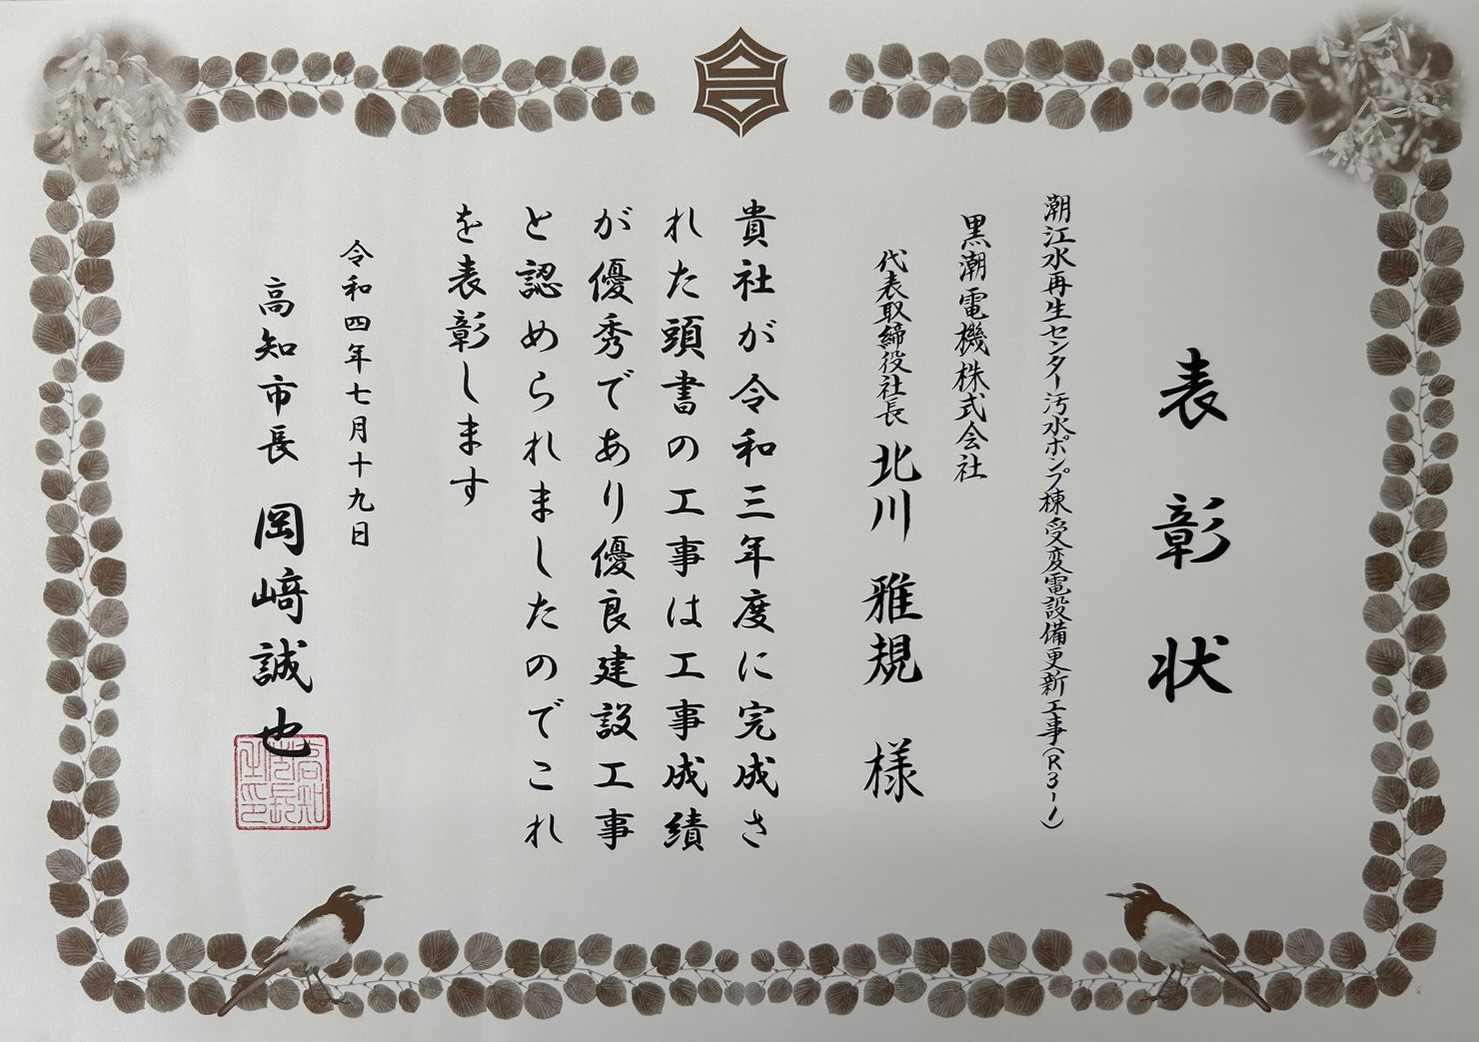 表彰状
潮江水再生センター汚水ポンプ棟受変電設備更新工事(R3-1)
黒潮電機株式会社
代表取締役社長 北川 雅規 様
貴社が令和三年度に完成さ
れた頭書の工事は工事成績
が優秀であり優良建設工事
と認められましたのでこれ
を表彰します
令和四年七月十九日
高知市長 岡﨑誠也
高知市長之印